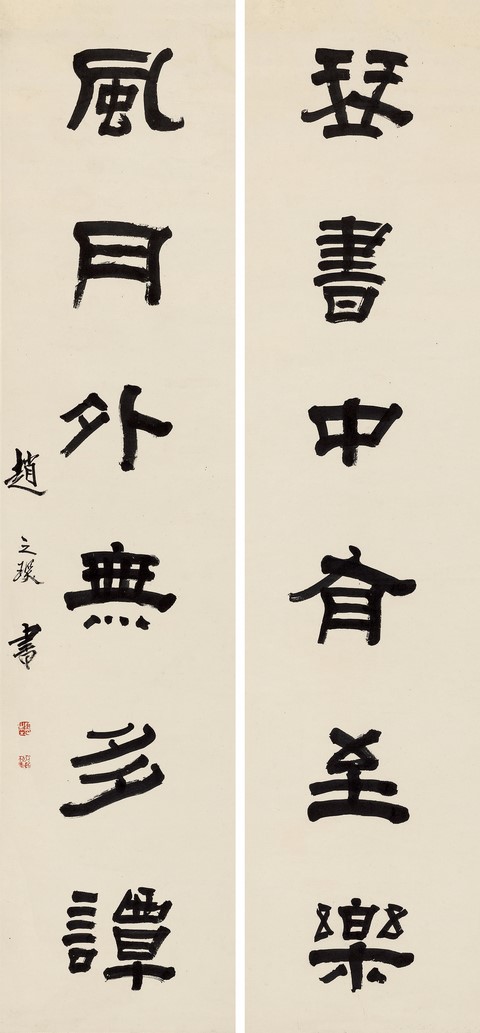 琴書中有至樂
風月外無多譚
趙之琛書